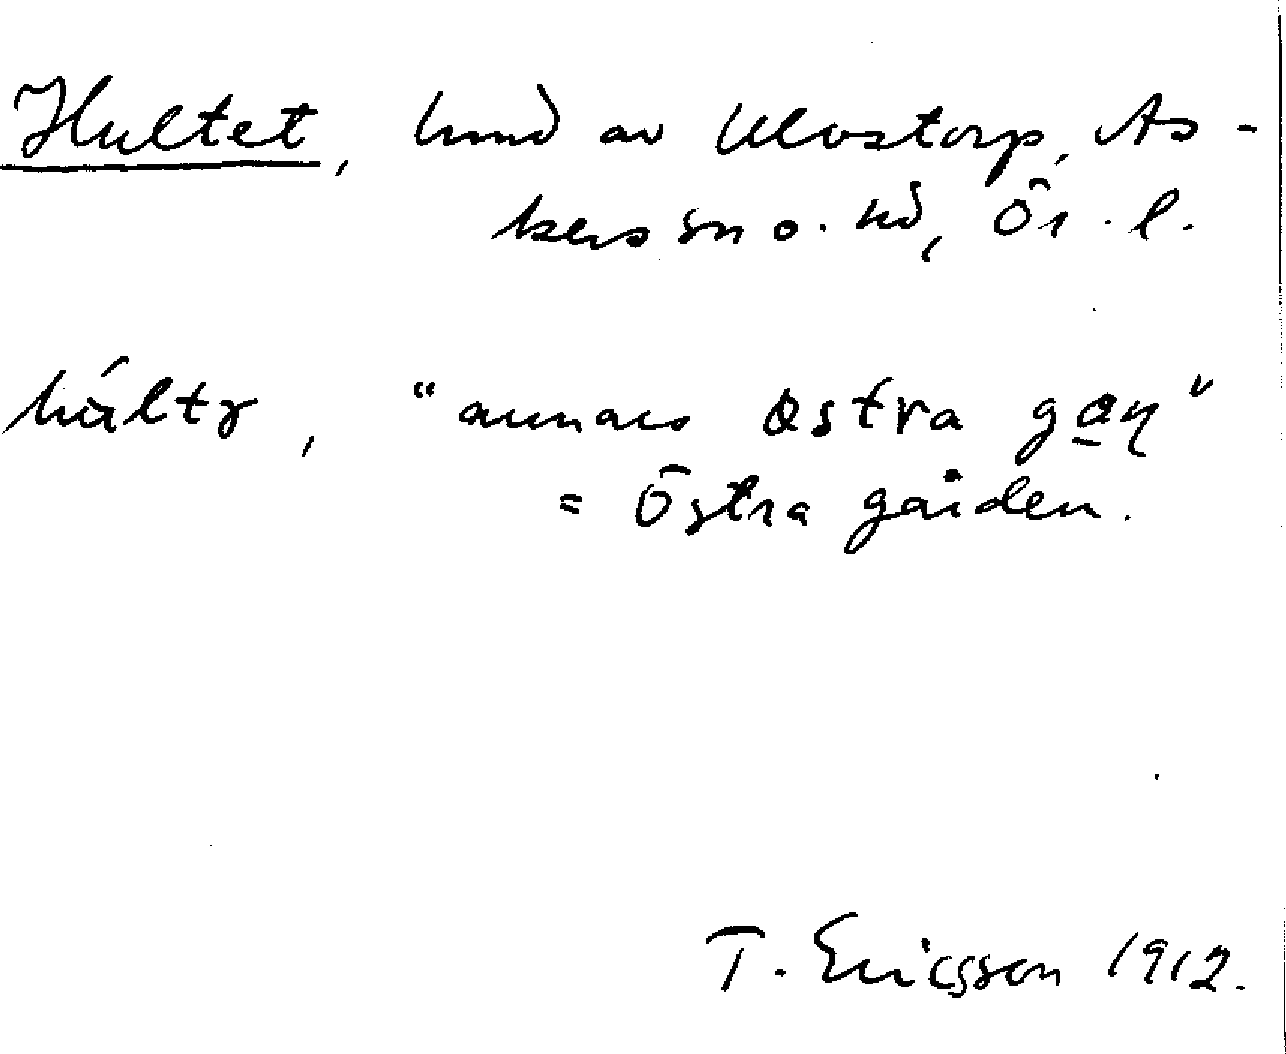 Hultet, hmd av Ulvstorp, As-
kers sn o. hd, Ör. l.
"annars östra
= Östra gården.
T. Ericsson 1912.